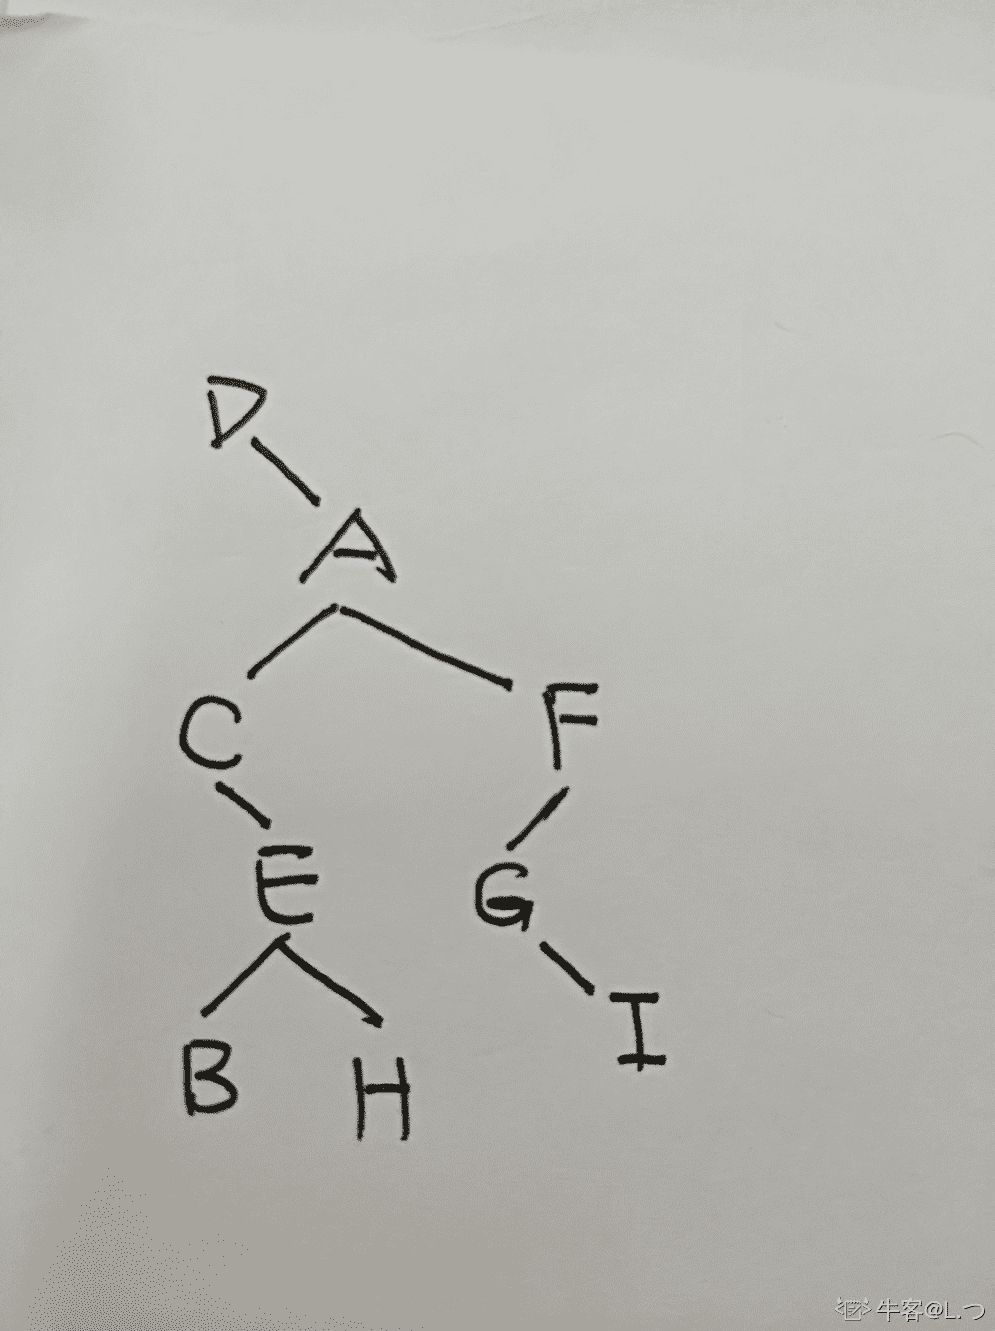 D
A
C F
E G
I
B H
牛客@L.つ